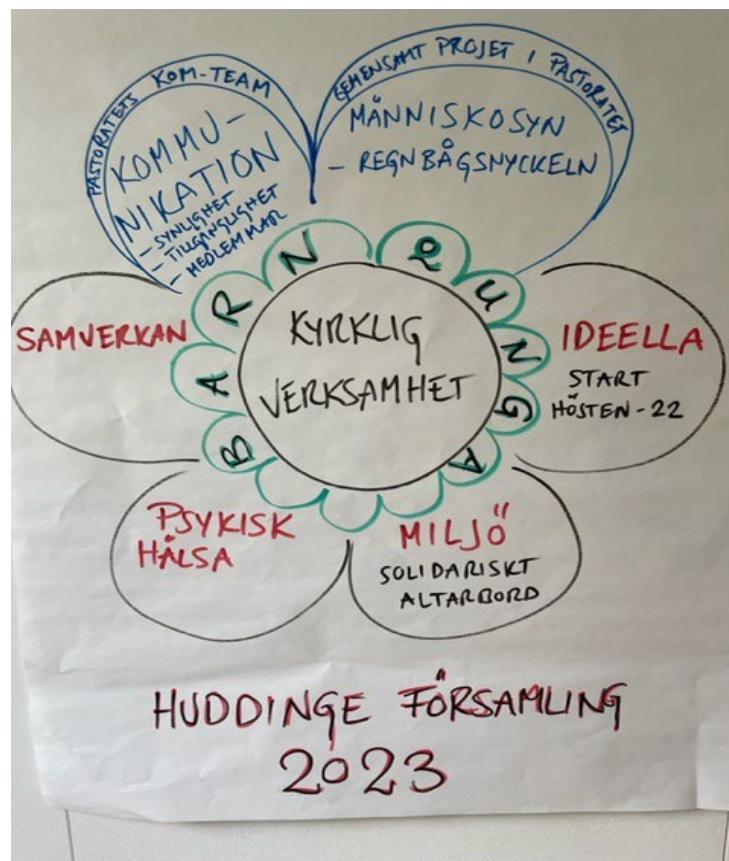 PASTORATETS KOM-TEAM
KOMMU-
NIKATION
- SYNLIGHET
- TILLGÄNGLIGHET
- MEDLEMMAR
GEMENSAMT PROJET I PASTORATET
MÄNNISKOSYN
- REGNBÅGSNYCKELN
BARN & UNGA
KYRKLIG
VERKSAMHET
SAMVERKAN
IDEELLA
START
HÖSTEN-22
PSYKISK
HÄLSA
MILJÖ
SOLIDARISKT
ALTARBORD
HUDDINGE FÖRSAMLING
2023